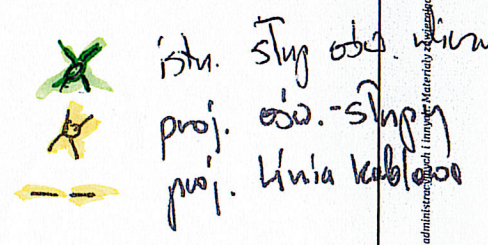 istn. słup ośw. ulicz
proj. ośw. - słupy
proj. linia kablowa
administracyjnych i innych Materiały zawierające